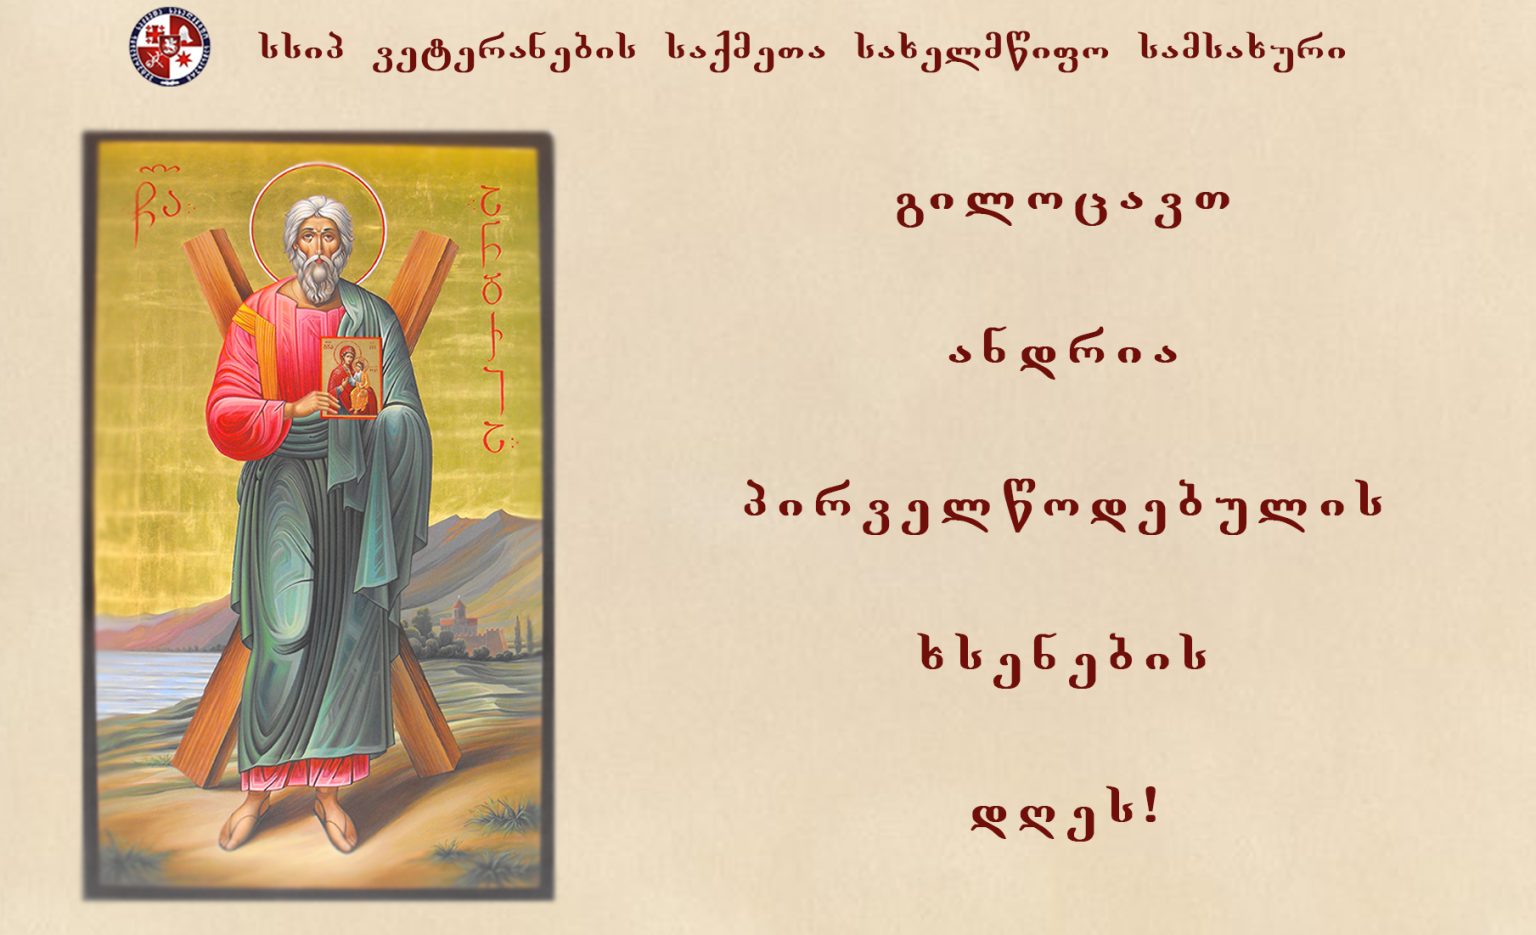 სსიპ ვეტერანების საქმეთა სახელმწიფო სამსახური
გილოცავთ
ანდრია
პირველწოდებულის
ხსენების
დღეს!